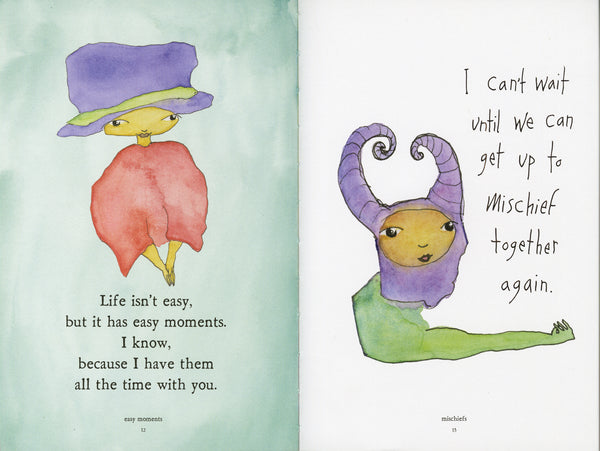 Life isn't easy,
but it has easy moments.
I know,
because I have them
all the time with you.
easy moments
12
I can't wait
until we can
get up to
mischief
together
again.
mischiefs
15